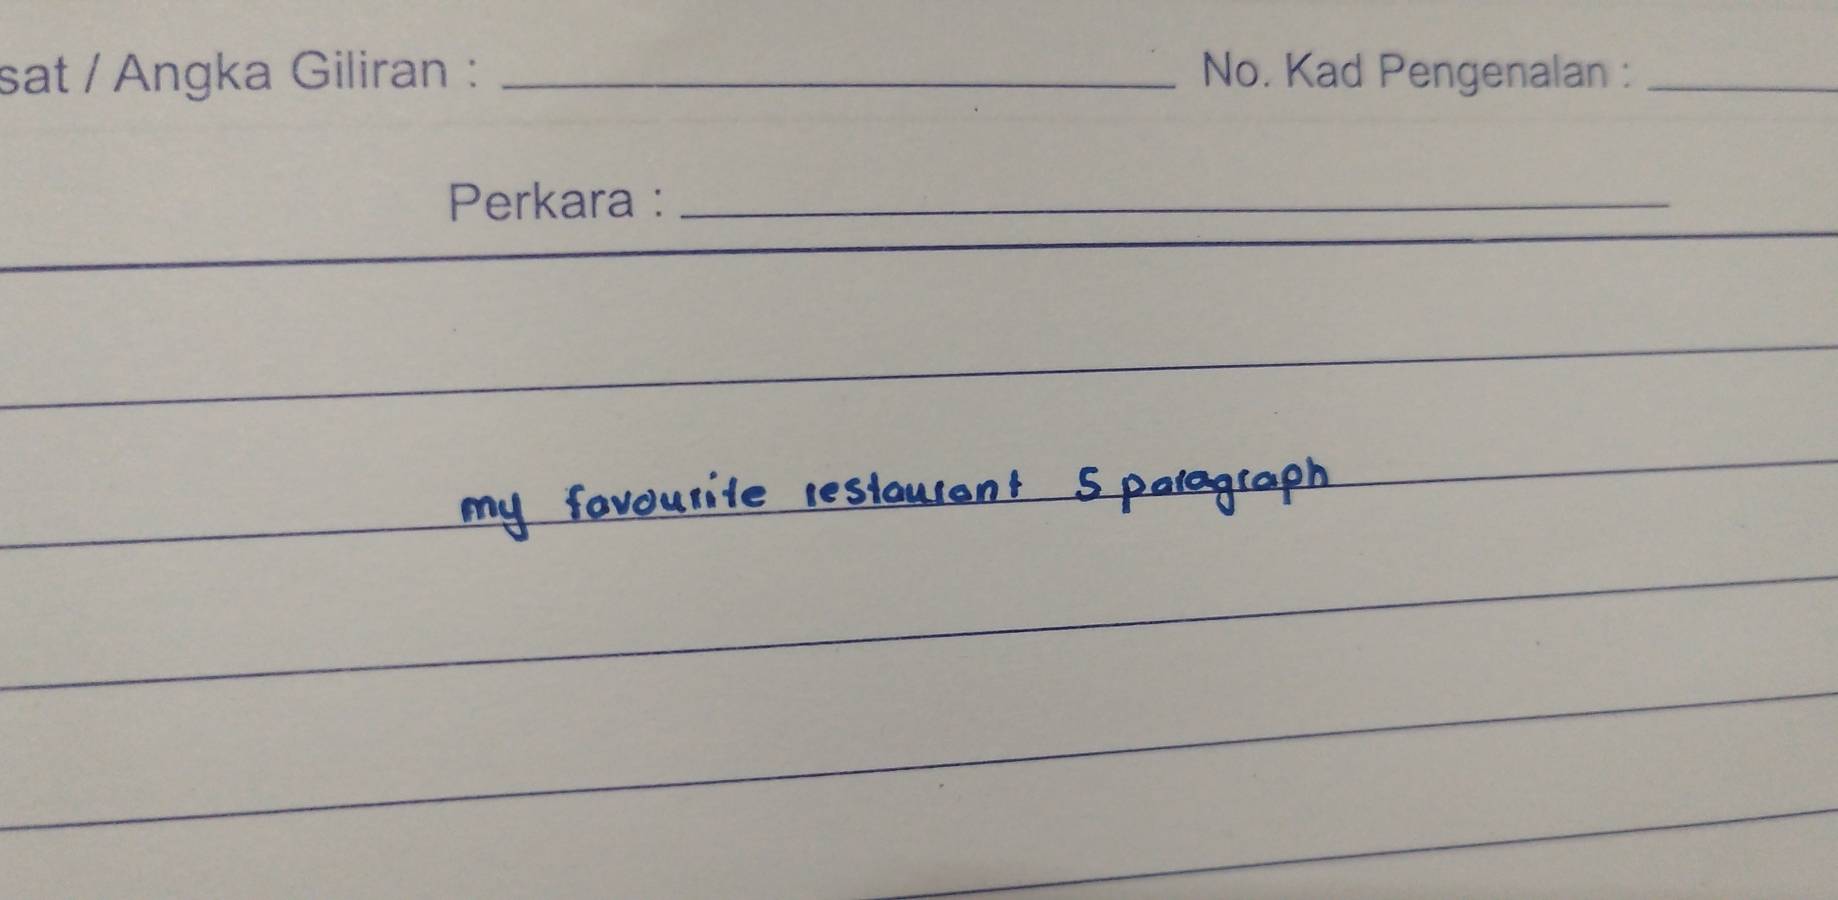 sat / Angka Giliran :
No. Kad Pengenalan :
Perkara :
my favourite restaurant 5 paragraph